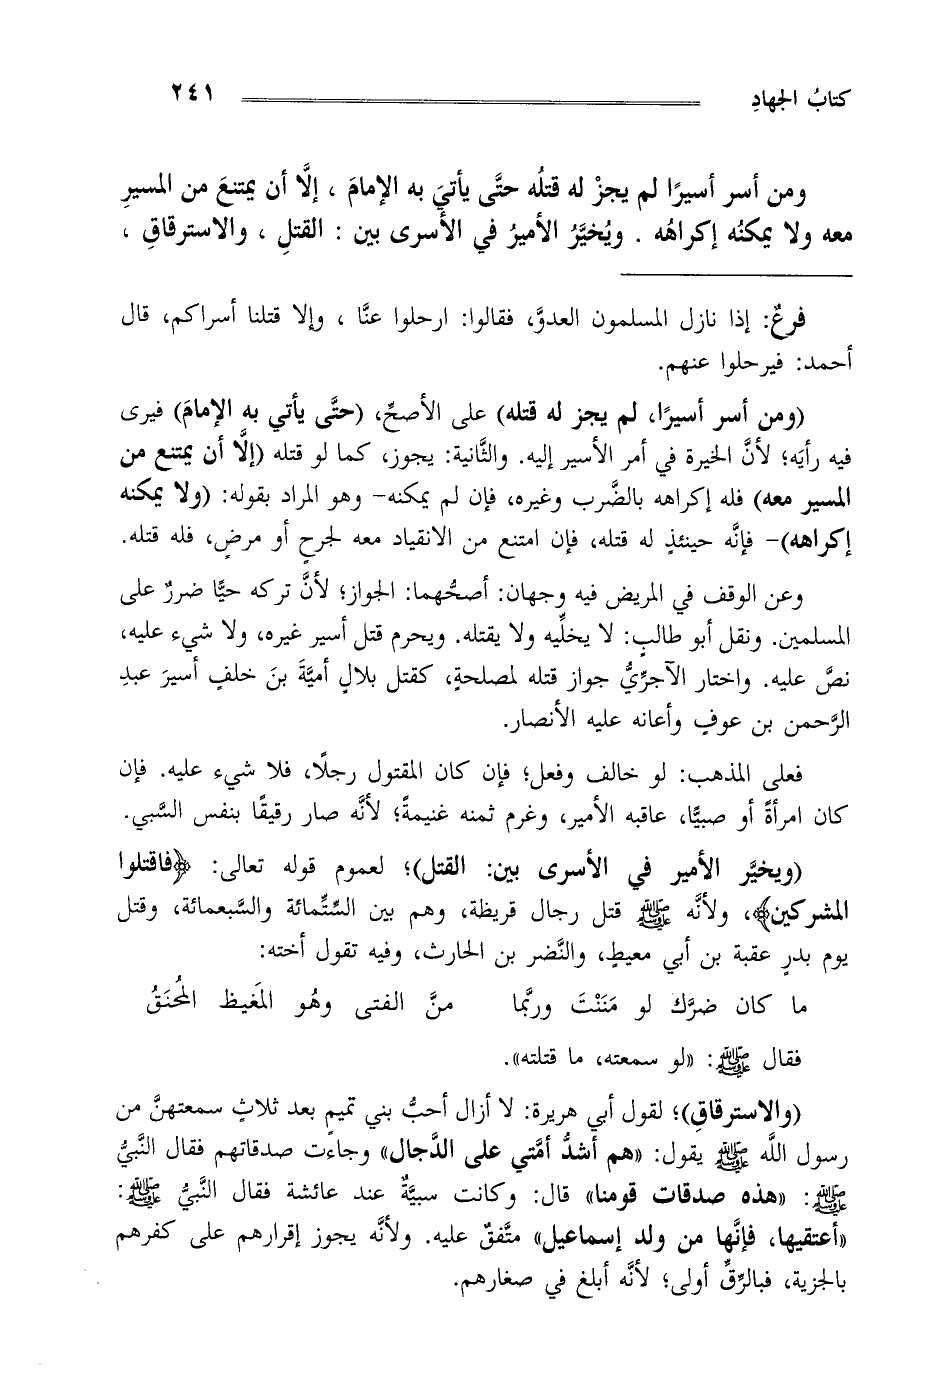 كتابُ الجهادِ ٢٤١
ومن أسر أسيرًا لم يجزْ له قتلُه حتَّى يأتيَ به الإمامَ ، إلَّا أن يمتنعَ من المسيرِ
معه ولا يمكنُه إكراهُه . ويُخيَّرُ الأميرُ في الأسرى بين : القتلِ ، والاسترقاقِ ،
فرعٌ: إذا نازل المسلمون العدوَّ، فقالوا: ارحلوا عنَّا ، وإلا قتلنا أسراكم، قال
أحمد: فيرحلوا عنهم.
(ومن أسر أسيرًا، لم يجز له قتله) على الأصحِّ، (حتَّى يأتي به الإمامَ) فيرى
فيه رأيَه؛ لأنَّ الخيرة في أمر الأسير إليه. والثَّانية: يجوز، كما لو قتله (إلَّا أن يمتنع من
المسير معه) فله إكراهه بالضَّرب وغيره، فإن لم يمكنه- وهو المراد بقوله: (ولا يمكنه
إكراهه)- فإنَّه حينئذٍ له قتله، فإن امتنع من الانقياد معه لجرحٍ أو مرضٍ، فله قتله.
وعن الوقف في المريض فيه وجهان: أصحُّهما: الجواز؛ لأنَّ تركه حيًّا ضررٌ على
المسلمين. ونقل أبو طالبٍ: لا يخلِّيه ولا يقتله. ويحرم قتل أسير غيره، ولا شيء عليه،
نصَّ عليه. واختار الآجرِّيُّ جواز قتله لمصلحةٍ، كقتل بلالٍ أميَّةَ بنَ خلفٍ أسيرَ عبدِ
الرَّحمن بن عوفٍ وأعانه عليه الأنصار.
فعلى المذهب: لو خالف وفعل؛ فإن كان المقتول رجلًا، فلا شيء عليه. فإن
كان امرأةً أو صبيًّا، عاقبه الأمير، وغرم ثمنه غنيمةً؛ لأنَّه صار رقيقًا بنفس السَّبي.
(ويخيَّر الأمير في الأسرى بين: القتل)؛ لعموم قوله تعالى: ﴿فاقتلوا
المشركين﴾، ولأنَّه ﷺ قتل رجال قريظة، وهم بين السِّتِّمائة والسَّبعمائة، وقتل
يوم بدرٍ عقبة بن أبي معيطٍ، والنَّضر بن الحارث، وفيه تقول أخته:
ما كان ضرَّك لو مَنَنْتَ وربَّما منَّ الفتى وهُو المَغيظ المُحنَقُ
فقال ﷺ: «لو سمعته، ما قتلته».
(والاسترقاقِ)؛ لقول أبي هريرة: لا أزال أحبُّ بني تميمٍ بعد ثلاثٍ سمعتهنَّ من
رسول اللَّه ﷺ يقول: «هم أشدُّ أمَّتي على الدَّجال» وجاءت صدقاتهم فقال النَّبيُّ
ﷺ: «هذه صدقات قومنا» قال: وكانت سبيَّةٌ عند عائشة فقال النَّبيُّ ﷺ:
«أعتقيها، فإنَّها من ولد إسماعيل» متَّفقٌ عليه. ولأنَّه يجوز إقرارهم على كفرهم
بالجزية، فبالرِّقِّ أولى؛ لأنَّه أبلغ في صغارهم.